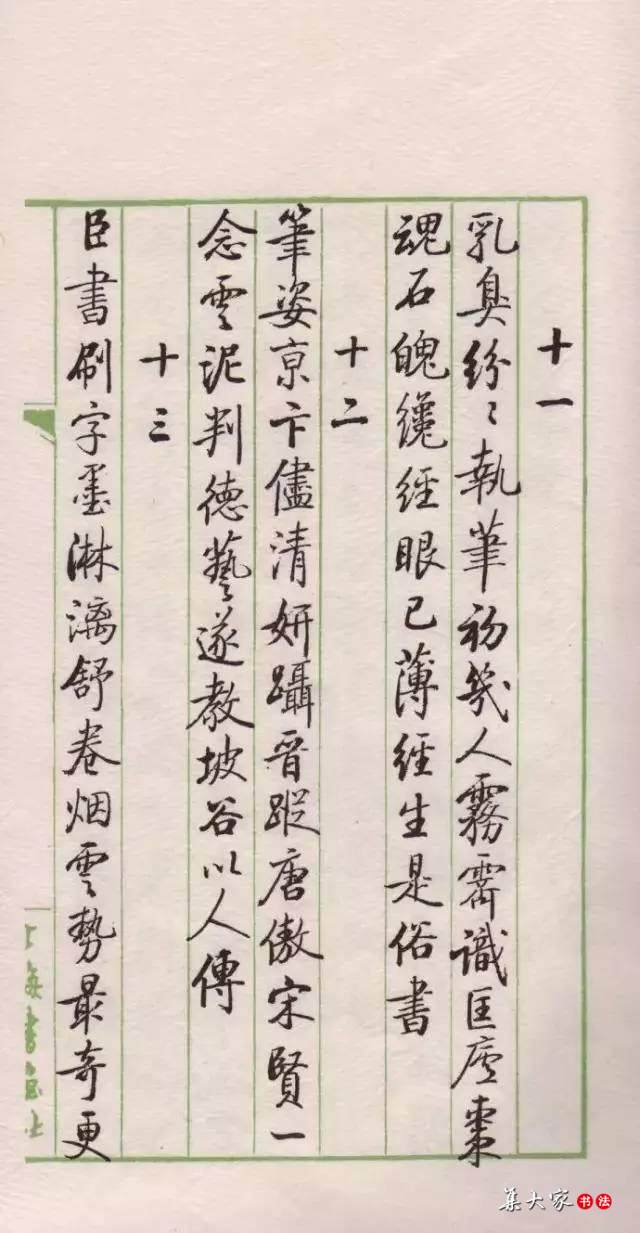 十一
乳臭紛〻執筆初幾人霧霽識匡廬棗
魂石魄纔經眼已薄經生是俗書
十二
筆姿京卞儘清妍躡晉蹤唐傲宋賢一
念雲泥判德藝遂教坡谷以人傳
十三
臣書刷字墨淋漓舒卷烟雲勢最奇更
上海書畫社
集大家书法